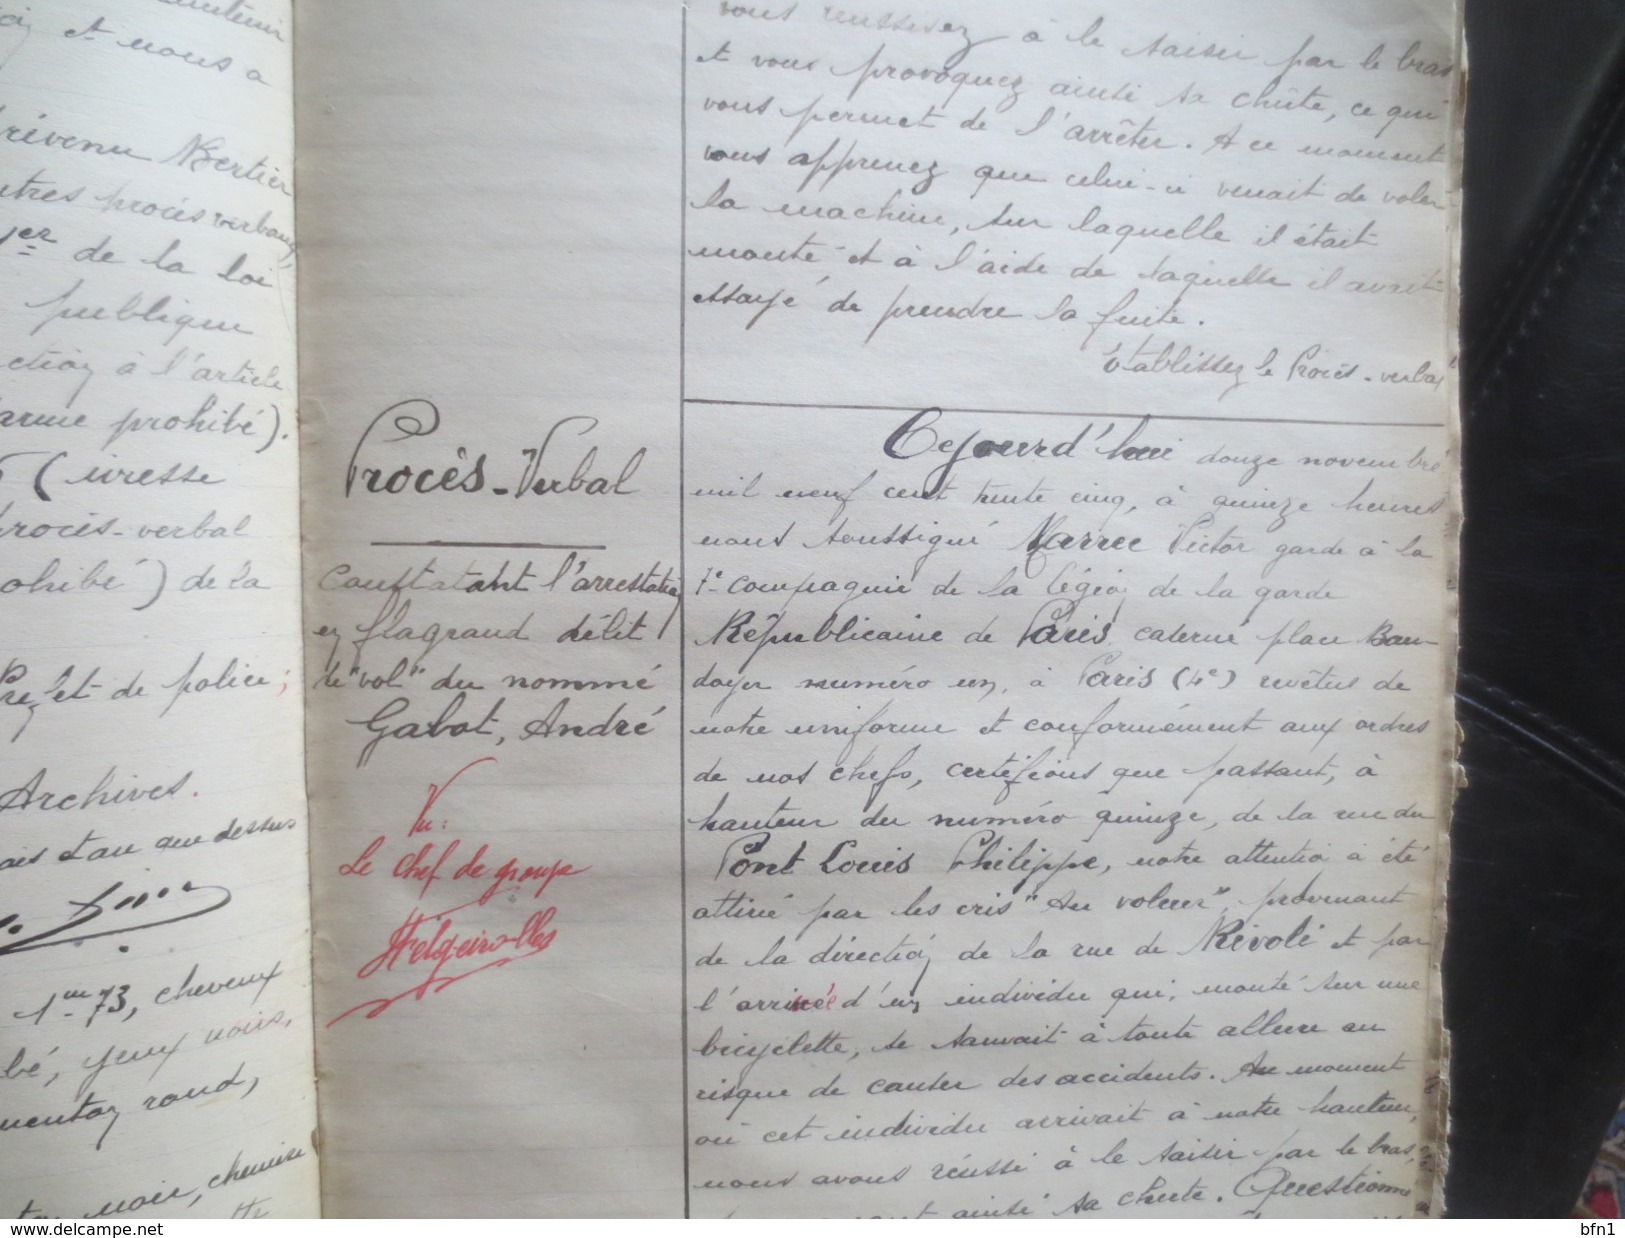 et nous a
révenu Bertier
utres procès verbaux,
1er de la loi
publique
ction à l'article
arme prohibé).
(ivresse
Procès-verbal
ohibé) de la
Préfet de police;
Archives.
que dessus
1m73, cheveux
bé, yeux noirs,
menton rond,
noir, chemise
Procès-Verbal
constatant l'arrestation
en flagrand délit
de "vol" du nommé
Gabot, André
Vu:
Le chef de groupe
vous réussissez à le saisir par le bras
et vous provoquez ainsi sa chûte, ce qui
vous permet de l'arrêter. A ce moment
vous apprenez que celui-ci venait de voler
la machine, sur laquelle il était
monté et à l'aide de laquelle il avait
essayé de prendre la fuite.
Établissez le Procès-verbal
Cejourd'hui douze novembre
mil neuf cent trente cinq, à quinze heures
nous soussigné Marrec Victor garde à la
7e compagnie de la légion de la garde
Républicaine de Paris, caserné place Bau-
doyer numéro un, à Paris (4e) revêtus de
notre uniforme et conformément aux ordres
de nos chefs, certifions que passant, à
hauteur du numéro quinze, de la rue du
Pont Louis Philippe, notre attention à été
attiré par les cris "Au voleur", provenant
de la direction de la rue de Rivoli et par
l'arrivée d'un individu qui, monté sur une
bicyclette, se sauvait à toute allure au
risque de causer des accidents. Au moment
où cet individu arrivait à notre hauteur,
nous avons réussi à le saisir par le bras,
ainsi sa chute. Questionné
bfn1